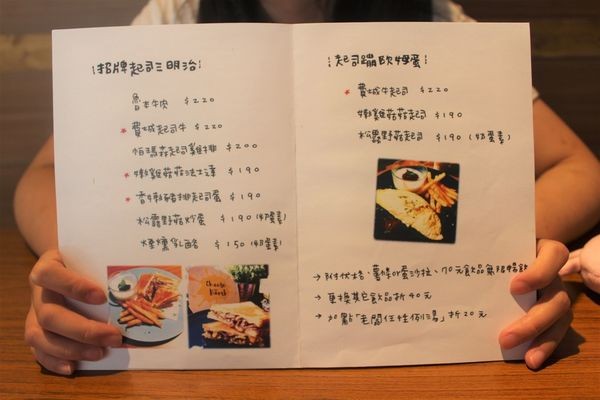 招牌起司三明治
魯本牛肉 $220
★費城起司牛 $220
帕瑪森起司雞排 $200
★嫩雞菇菇法士達 $190
★香嫩豬排起司蛋 $190
松露野菇炒蛋 $190 (奶蛋素)
煙燻乳酪 $150 (奶蛋素)
Cheese
起司蹦歐姆蛋
★費城牛起司 $220
嫩雞菇菇起司 $190
松露野菇起司 $190 (奶蛋素)
→附伏士格、薯條or蛋沙拉、70元飲品無限暢飲
→更換其它飲品折40元
→加點「老闆任性例湯」折20元